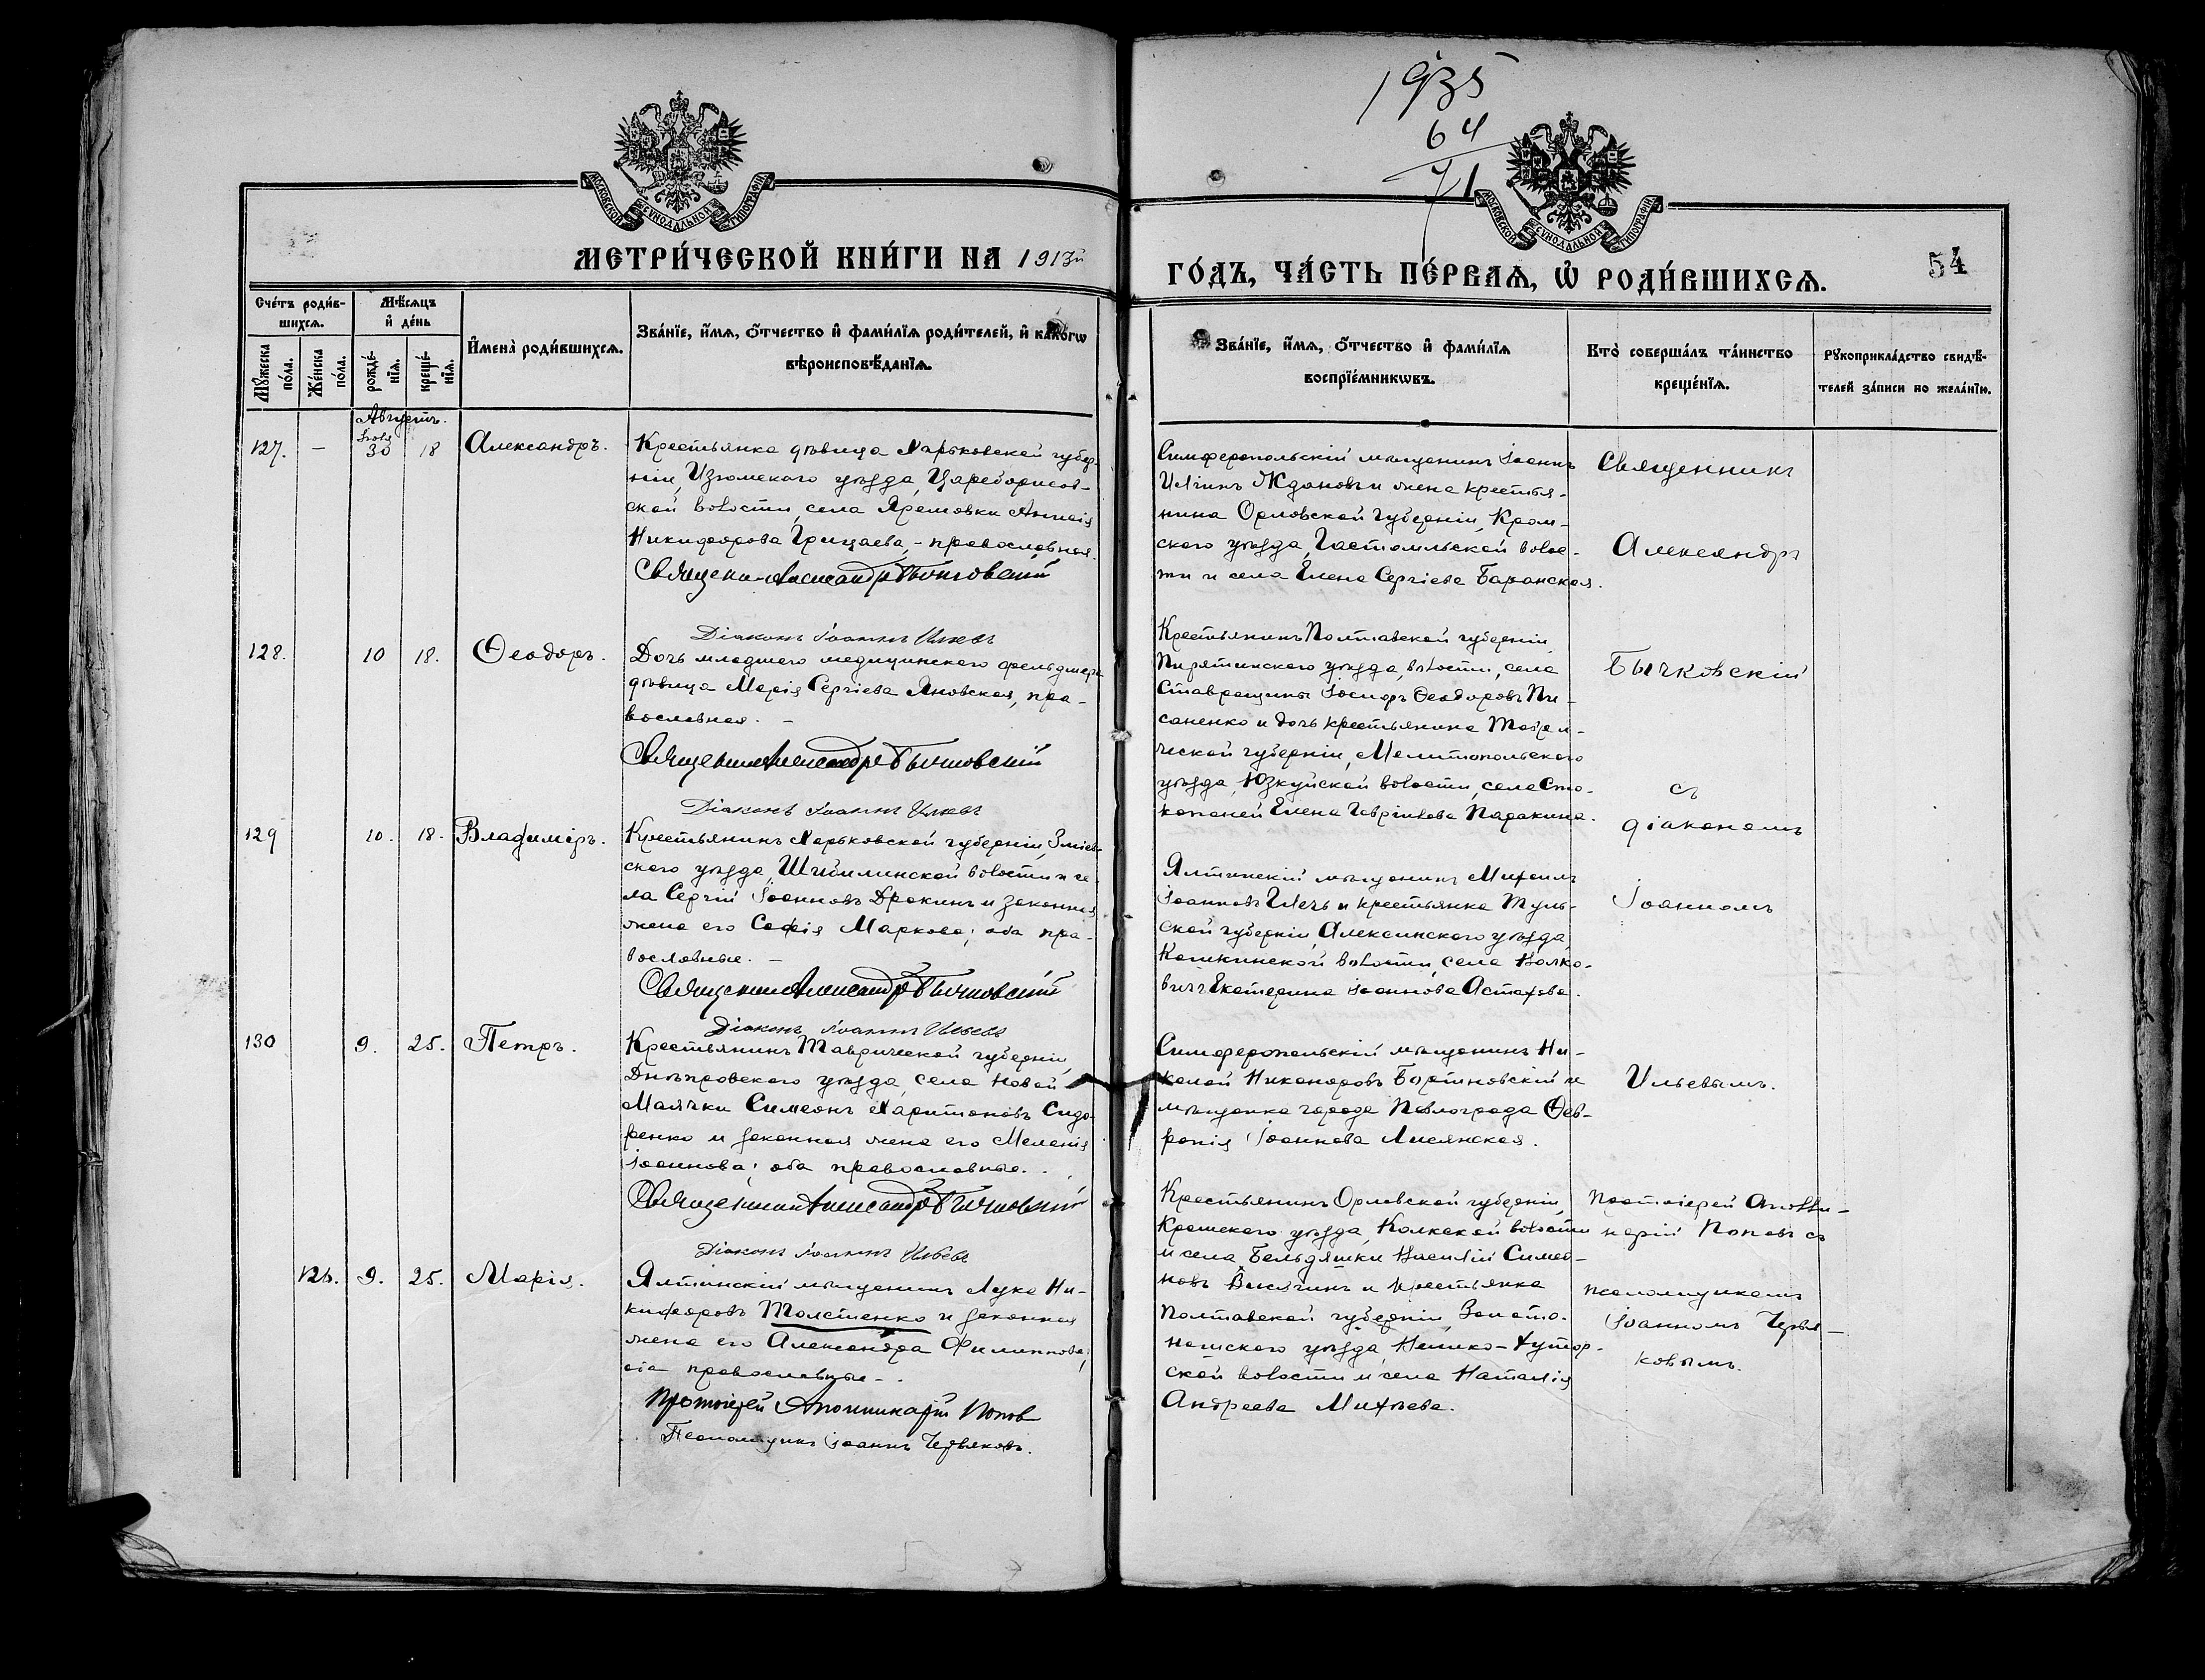 1935
64
71
МОСКОВСКОЙ СѴНОДАЛЬНОЙ ТИПОГРАФІИ
МОСКОВСКОЙ СѴНОДАЛЬНОЙ ТИПОГРАФІИ
МЕТРИ́ЧЕСКОЙ КНИ́ГИ НА 1913й
ГО́ДЪ, ЧА́СТЬ ПЕ́РВАѦ, Ѡ҆ РОДИ́ВШИХСѦ.
54
Сче́тъ роди́в-
шихсѧ.
Мꙋ́жеска по́ла.
Же́нска по́ла.
Мѣ́сѧцъ
и҆ де́нь
рожде́-
нїѧ.
креще́-
нїѧ.
И҆мена̀ роди́вшихсѧ.
Зва́нїе, и҆́мѧ, ѻ҆́тчество и҆ фами́лїѧ роди́телей, и҆ како́гѡ
вѣроисповѣ́данїѧ.
Зва́нїе, и҆́мѧ, ѻ҆́тчество и҆ фами́лїѧ
воспрїе́мникѡвъ.
Кто̀ соверша́лъ та́инство
креще́нїѧ.
Рꙋкоприкла́дство свидѣ́-
телей за́писи по жела́нїю.
Августъ.
127.
—
Іюля
30
18
Александръ.
Крестьянка дѣвица Харьковской губер-
ніи, Изюмскаго уѣзда, Цареборисов-
ской волости, села Яремовки Анисія
Никифорова Грицаева, - православная.
Священникъ Александръ Бычковскій
Діаконъ Іоаннъ Ильевъ
Симферопольскій мѣщанинъ Іоаннъ
Ждановъ и жена крестья-
нина Орловской губерніи, Кром-
ского уѣзда, Гастомльской волос-
ти и села Елена Сергіева Баранская.
Священникъ
Александръ
128.
10
18.
Ѳеодоръ.
Дочь младшаго медицинскаго фельдшера
дѣвица Марія Сергіева Яновская, пра-
вославная. -
Священникъ Александръ Бычковскій
Діаконъ Іоаннъ Ильевъ
Крестьянинъ Полтавской губерніи,
Пирятинскаго уѣзда, волости, села
Іосифъ Ѳеодоровъ Пи-
саненко и дочь крестьянина Таври-
ческой губерніи, Мелитопольскаго
уѣзда, Юзкуйской волости, села Сто-
копаней Елена Гавріилова Паракина.
Бычковскій
съ
діакономъ
129
10.
18.
Владиміръ.
Крестьянинъ Харьковской губерніи, Зміев-
скаго уѣзда, Шибилинской волости и се-
ла Сергій Іоанновъ Дрокинъ и законная
жена его Софія Маркова; оба пра-
вославные. -
Священникъ Александръ Бычковскій
Діаконъ Іоаннъ Ильевъ
Ялтинскій мѣщанинъ Михаилъ
Іоанновъ и крестьянка Туль-
ской губерніи, Алексинскаго уѣзда,
волости, села Волко-
вичъ Екатерина Іоаннова Астахова.
Іоанномъ
130
9.
25.
Петръ.
Крестьянинъ Таврической губерніи,
Днѣпровскаго уѣзда, села Новой
Маячки Симеонъ Харитоновъ Сидо-
ренко и законная жена его Меланія
Іоаннова; оба православные.
Священникъ Александръ Бычковскій
Діаконъ Іоаннъ Ильевъ
Симферопольскій мѣщанинъ Ни-
колай Никаноровъ Бортновскій и
мѣщанка города Павлограда Ѳев-
ронія Іоаннова Лисянская.
Ильевымъ.
126.
9.
25.
Марія.
Ялтинскій мѣщанинъ Лука Ни-
кифоровъ Толстенко и законная
жена его Александра Филиппова;
оба православные -.
Протоіерей Аполлинарій Поповъ
Псаломщикъ Іоаннъ Червяковъ.
Крестьянинъ Орловской губерніи,
Кромскаго уѣзда, волости
и села Бельдяшки Василій Симео-
новъ и крестьянка
Полтавской губерніи, Золото-
ношскаго уѣзда, -Хутор-
ской волости и села Наталія
Андреева Михѣева.
Протоіерей Аполли-
нарій Поповъ съ
псаломщикомъ
Іоанномъ Червя-
ковымъ.